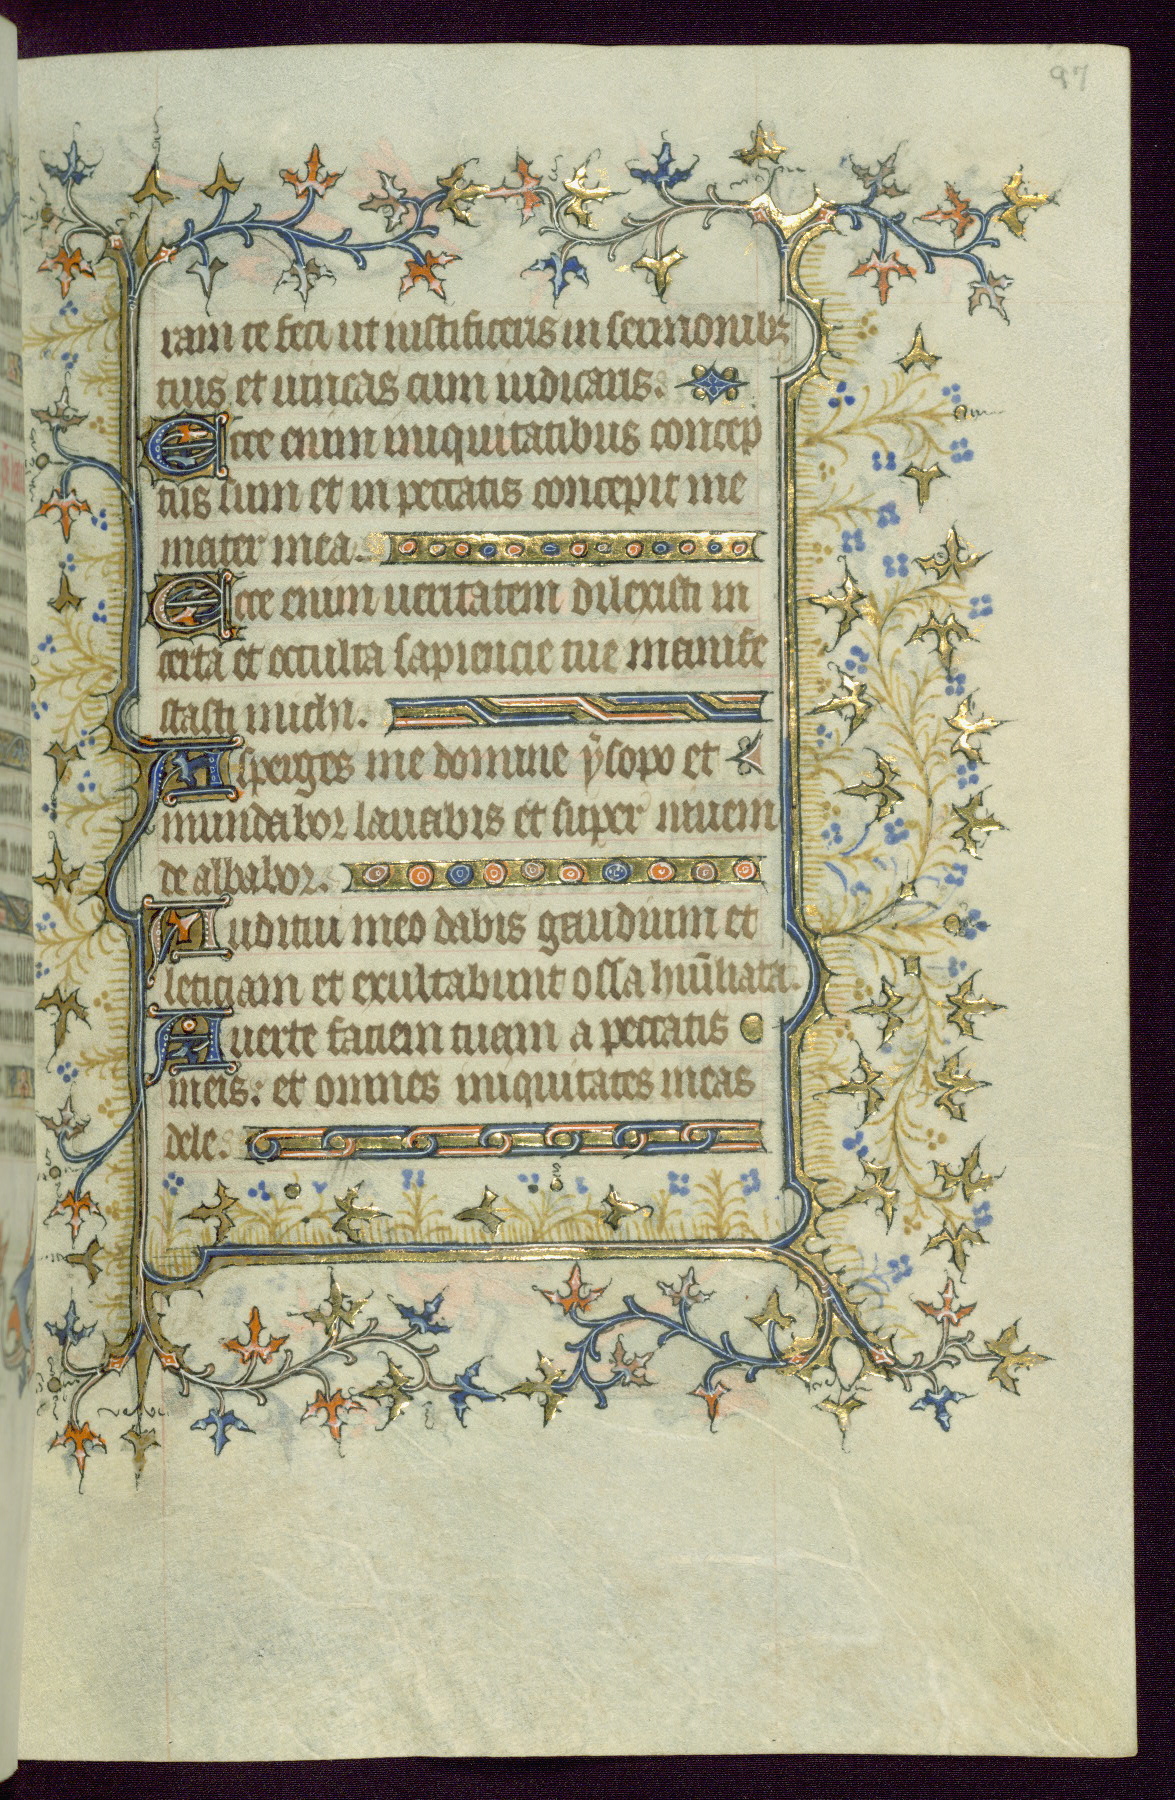 97
ram te feci ut iustificeris in sermonibꝫ
tuis et uincas cum iudicaris.
Ecce enim iniquitatibus concep
tus sum et in peccatis concepit me
mater mea.
Ecce enim ueritatem dilexisti in
certa et occulta sapiencie tue manife
stasti michi.
Asperges me domine ẏsopo et
mundabor lauabis et super niuem
de albabor.
Auditui meo dabis gaudium et
leticiam et exultabunt ossa humĩliata.
Auerte faciem tuam a peccatis
meis: et omnes iniquitates meas
dele.